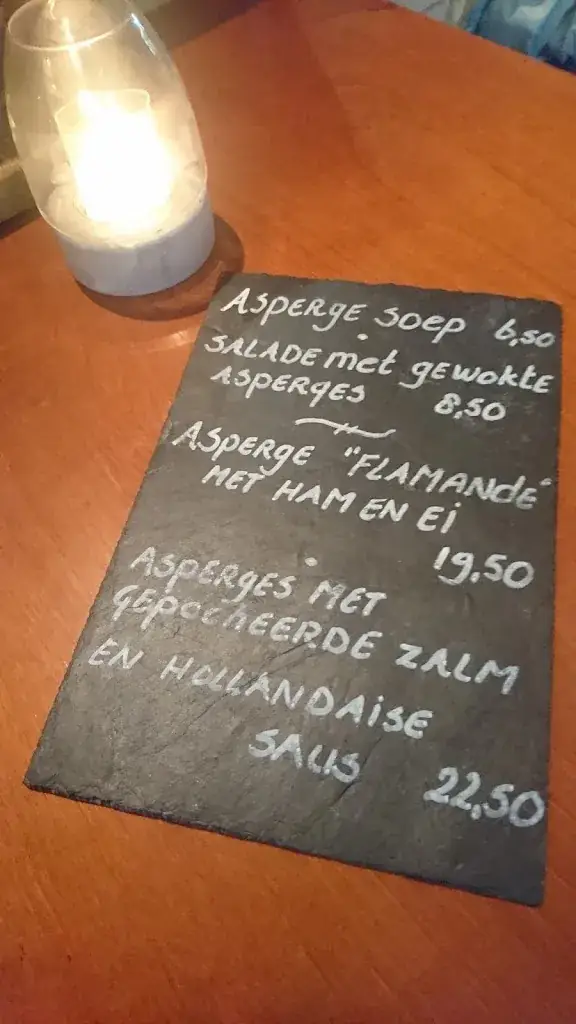 ASPERGE SOEP 6,50
SALADE met gewokte
ASPERGES 8,50
ASPERGE "FLAMANDE"
MET HAM EN Ei
19.50
ASPERGES MET
GEPOCHEERDE ZALM
EN HOLLANDAISE
SAUS 22,50